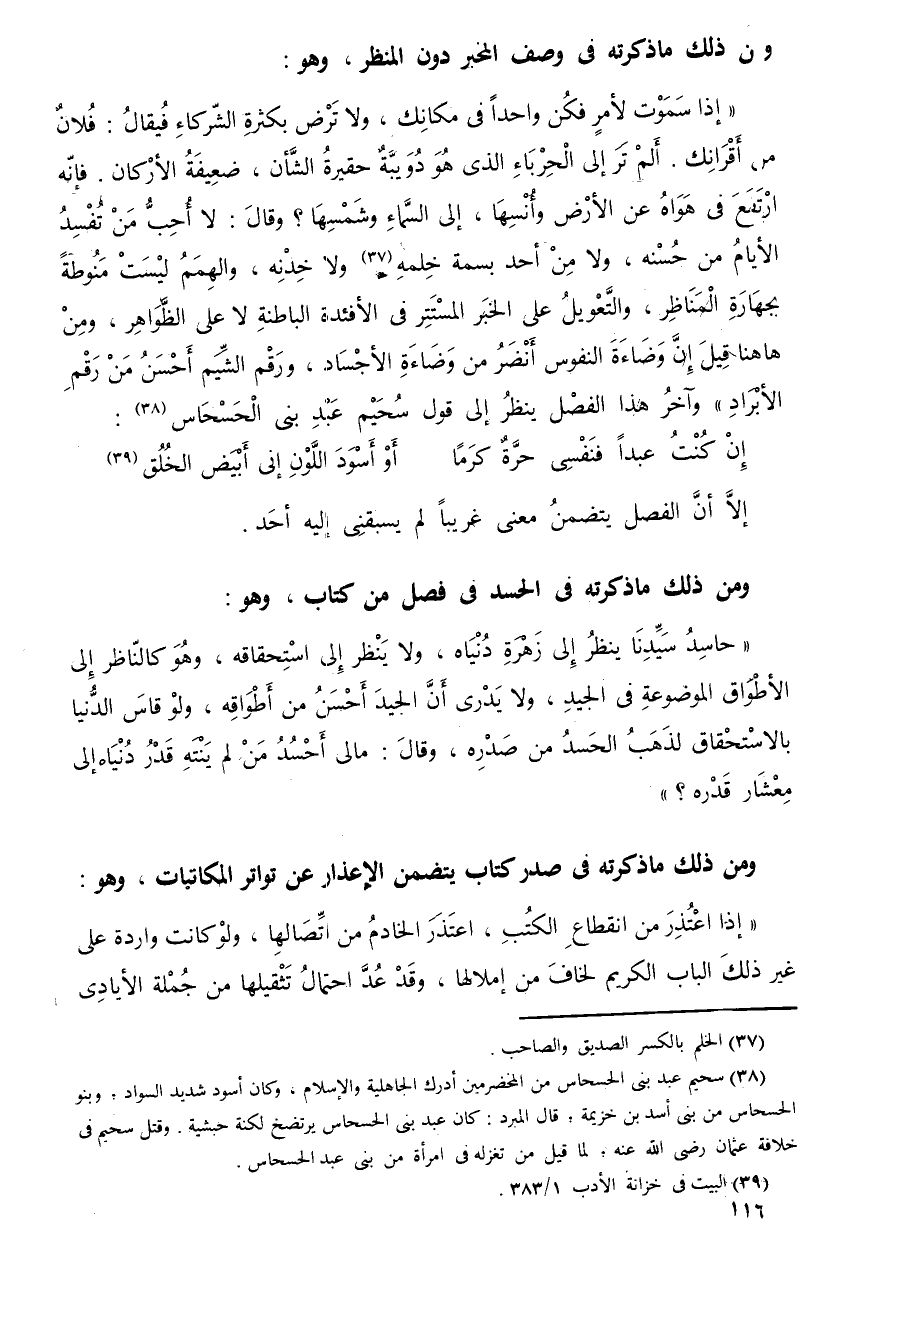 و ن ذلك ماذكرته فى وصف المخبر دون المنظر ، وهو :
« إذا سَمَوْت لأمرٍ فكُن واحداً فى مكانِك ، ولا تَرْض بكثرةِ الشّركاءِ فيُقالُ : فُلانٌ
من أَقْرَانِك . أَلمْ تَر إلى الْحِرْبَاءِ الذى هُوَ دُوَيبَّةٌ حقيرةُ الشَّأن ، ضعِيفَةُ الأرْكان . فإنّه
ارْتَفَعَ فى هَوَاهُ عن الأرْض وأُنْسِهَا ، إلى السَّماءِ وشَمْسِهَا ؟ وقالَ : لا أُحِبُّ مَنْ تُفْسِدُ
الأيامُ من حُسْنه ، ولا مِنْ أحد بسمة خِلمهِ (٣٧) ولا خِدْنِه ، والهِمَمُ ليْسَتْ مَنُوطَةً
بجهَارَةِ الْمَنَاظِرِ ، والتَّعْويلُ على الخبَر المسْتَتِر فى الأفئدة الباطنةِ لا على الظَّوَاهِرِ ، ومِنْ
هاهنا قِيلَ إنَّ وَضَاءَةَ النفوس أَنْضَرُ من وَضَاءَةِ الأجْسَادِ ، ورَقْم الشِّيَم أَحْسَنُ مَنْ رَقْمِ
الأبْرَادِ » وآخرُ هذا الفصْل ينظرُ إلى قول سُحَيْم عَبْدِ بنى الْحَسْحَاس (٣٨) :
إِنْ كُنْتُ عبداً فنَفْسِى حرَّةٌ كرَمًا     أَوْ أسْوَدَ اللَّوْنِ إنى أَبْيَض الخُلُق (٣٩)
إلاَّ أنَّ الفصل يتضمنُ معنى غريباً لم يسبقنِى إليه أحَد .
ومن ذلك ماذكرته فى الحسد فى فصل من كتاب ، وهو :
« حاسِدُ سَيِّدِنَا ينظرُ إلى زَهْرَةِ دُنْيَاه ، ولا يَنْظر إلى استِحقاقه ، وهُوَ كالنّاظر إِلى
الأطْوَاق الموضوعةِ فى الجيدِ ، ولا يَدْرى أنَّ الجيدَ أحْسَنُ من أَطْوَاقِه ، ولوْ قاسَ الدُّنيا
بالاسْتحْقاق لذَهَبُ الحَسدُ من صَدْرِه ، وقالَ : مالى أَحْسُدُ مَنْ لم يَنْتَهِ قَدْرُ دُنْيَاه إلى
مِعْشَار قَدْره ؟ »
ومن ذلك ماذكرته فى صدر كتاب يتضمن الإعذار عن تواتر المكاتبات ، وهو :
« إذا اعْتُذِرَ من انقطاعِ الكتُبِ ، اعتَذَرَ الخادمُ من اتِّصَالِها ، ولوْ كانت واردة على
غير ذلكَ الباب الكريم لخافَ من إملالها ، وقَدْ عُدَّ احتمالُ تَثْقيلها من جُمْلة الأيادِى
(٣٧) الخلم بالكسر الصديق والصاحب .
(٣٨) سحيم عبد بنى الحسحاس من المخضرمين أدرك الجاهلية والإسلام ، وكان أسود شديد السواد ؛ وبنو
الحسحاس من بنى أسد بن خزيمة ؛ قال المبرد : كان عبد بنى الحسحاس يرتضخ لكنة حبشية . وقتل سحيم فى
خلافة عثمان رضى الله عنه ؛ لما قيل من تغزله فى امرأة من بنى عبد الحسحاس .
(٣٩) البيت فى خزانة الأدب ٣٨٣/١ .
١١٦